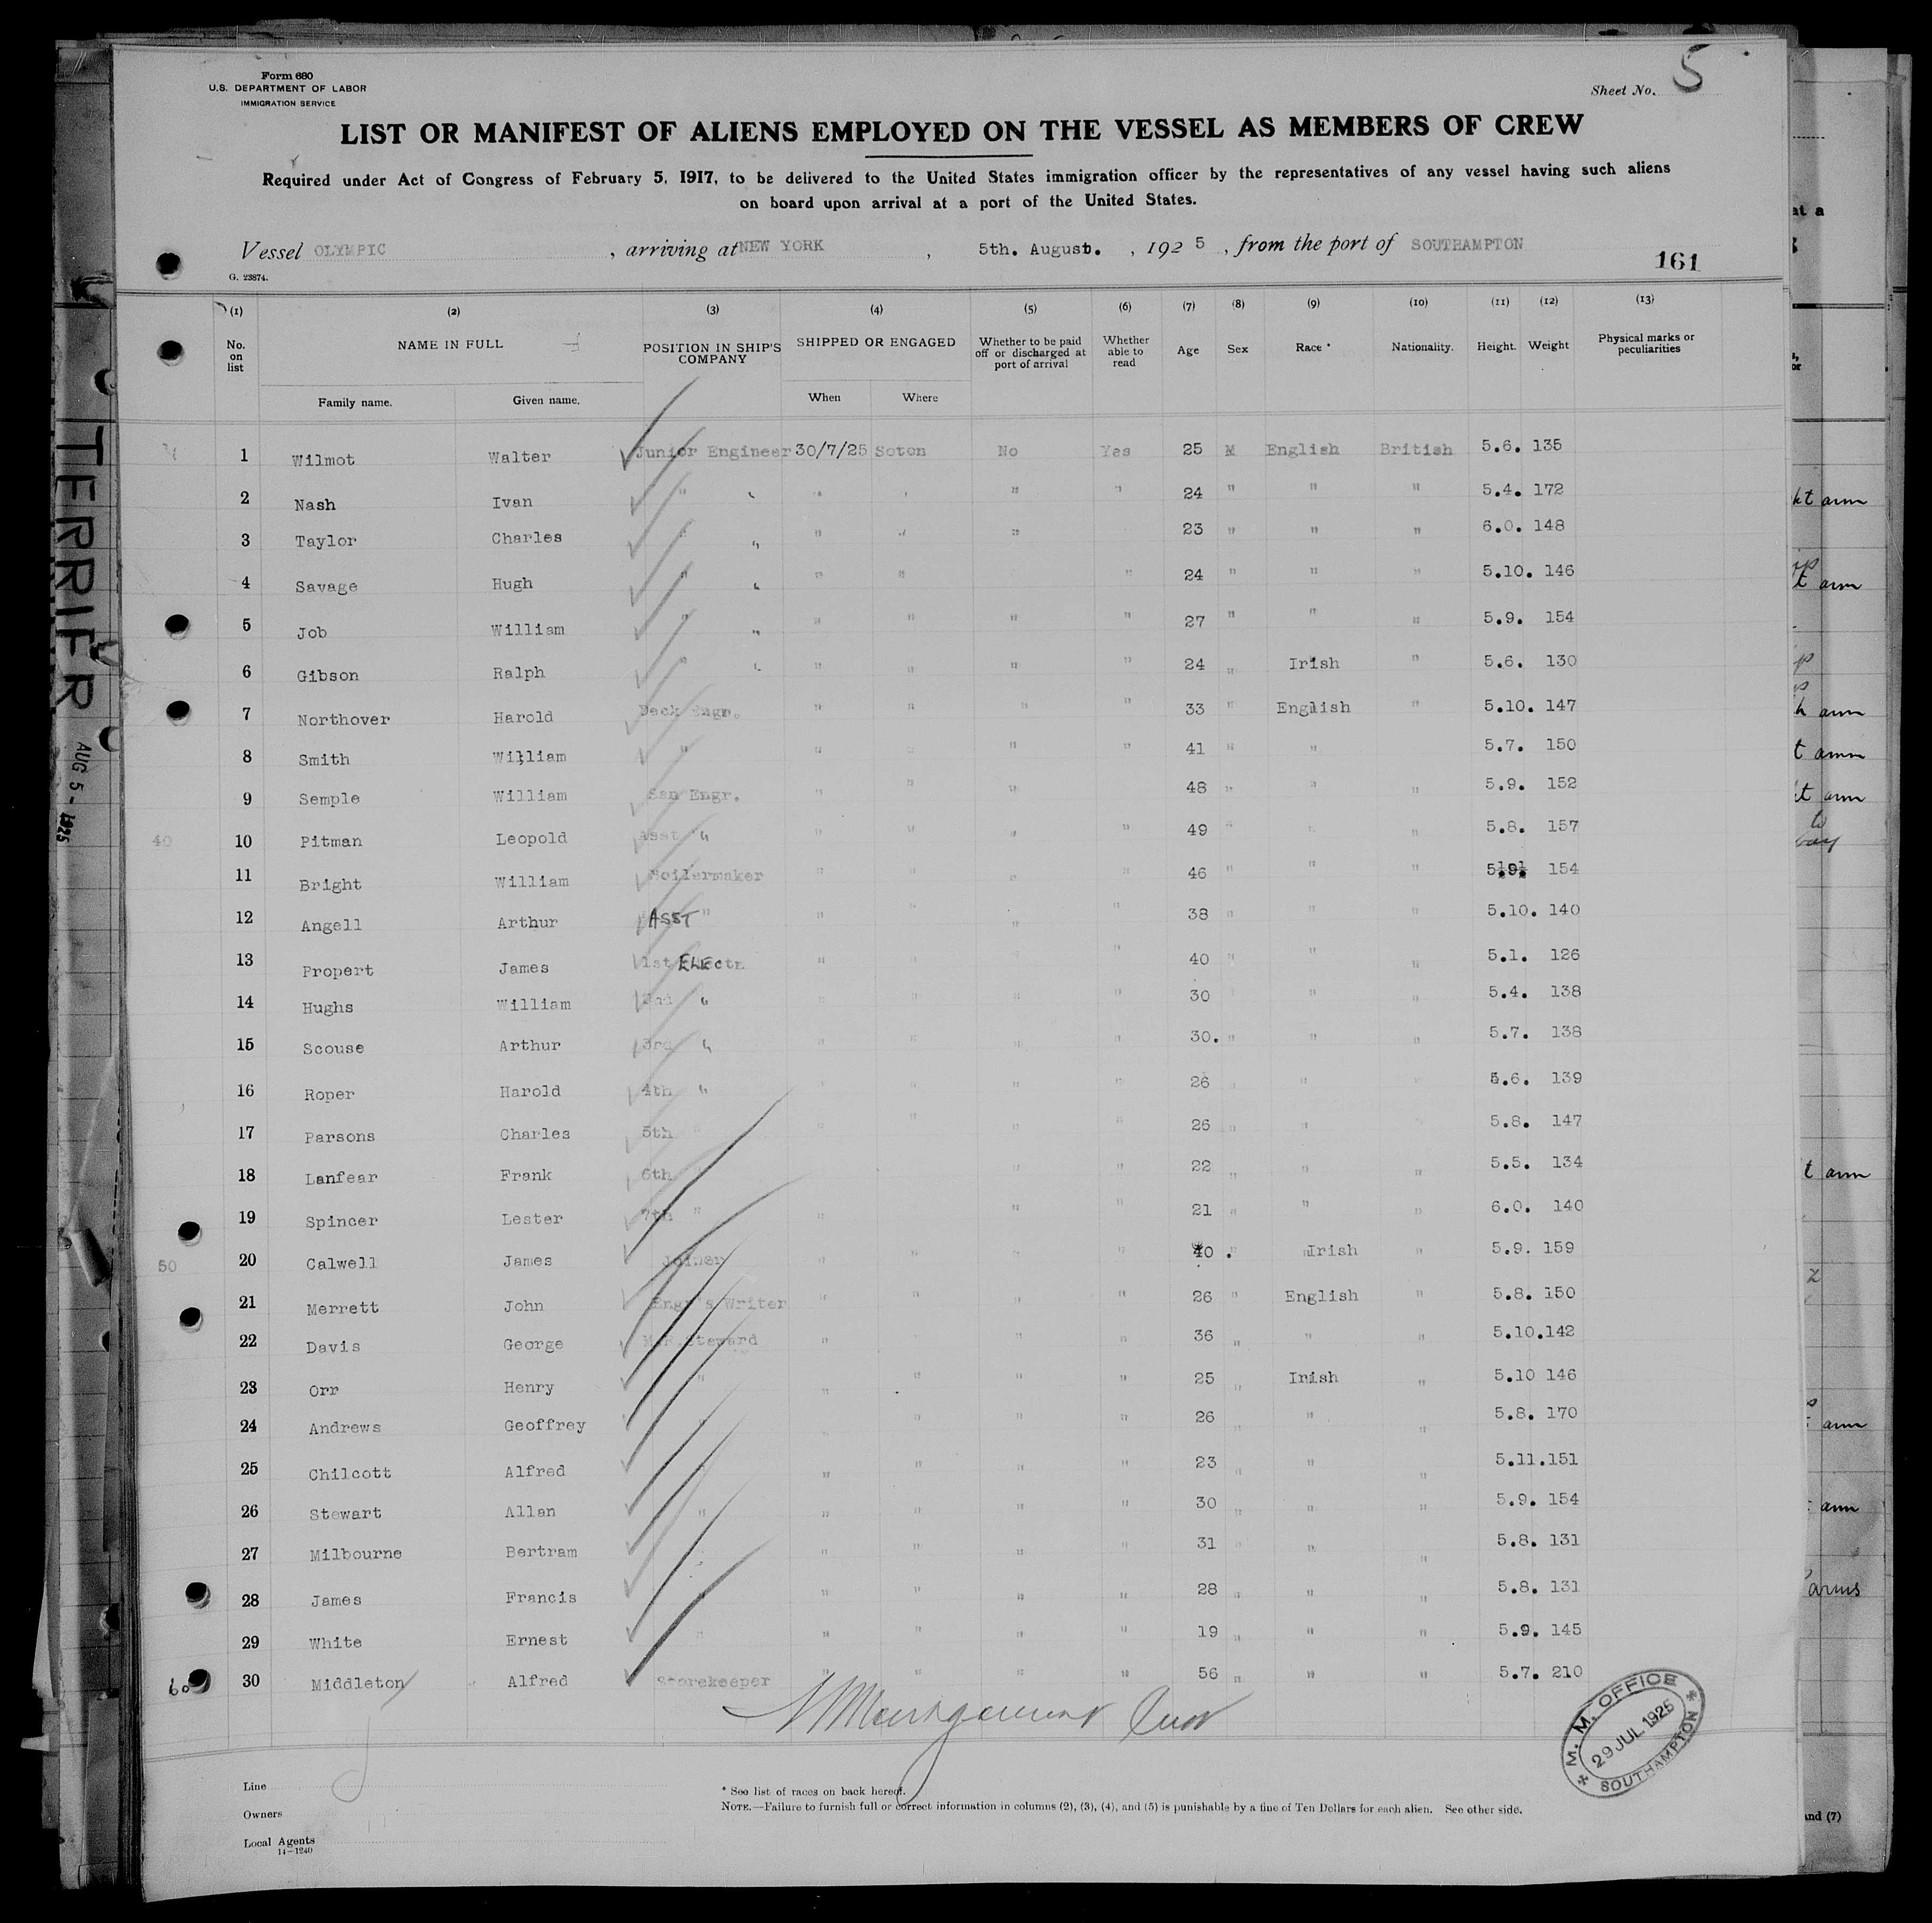 Form 680
U.S. DEPARTMENT OF LABOR
IMMIGRATION SERVICE
Sheet No. 5
LIST OR MANIFEST OF ALIENS EMPLOYED ON THE VESSEL AS MEMBERS OF CREW
Required under Act of Congress of February 5, 1917, to be delivered to the United States immigration officer by the representatives of any vessel having such aliens
on board upon arrival at a port of the United States.
Vessel OLYMPIC , arriving at NEW YORK , 5th. August. , 192 5 , from the port of SOUTHAMPTON
G. 23874.
161
(1) (2) (3) (4) (5) (6) (7) (8) (9) (10) (11) (12) (13)
No. on list NAME IN FULL POSITION IN SHIP'S COMPANY SHIPPED OR ENGAGED Whether to be paid off or discharged at port of arrival Whether able to read Age Sex Race * Nationality. Height. Weight Physical marks or peculiarities
Family name. Given name. When Where
1 Wilmot Walter Junior Engineer 30/7/25 Soton No Yes 25 M English British 5.6. 135
2 Nash Ivan " " " " " " 24 " " " 5.4. 172
3 Taylor Charles " " " " " 23 " " " 6.0. 148
4 Savage Hugh " " " " " 24 " " " 5.10. 146
5 Job William " " " " " " 27 " " " 5.9. 154
6 Gibson Ralph " " " " " " 24 " Irish " 5.6. 130
7 Northover Harold Deck Engr. " " " " 33 " English " 5.10. 147
8 Smith William " " " " " 41 " " " 5.7. 150
9 Semple William San Engr. " " " 48 " " " 5.9. 152
40 10 Pitman Leopold Asst " " " " " 49 " " " 5.8. 157
11 Bright William Boilermaker " " " " 46 " " " 154
12 Angell Arthur ASST " " " " " 38 " " " 5.10. 140
13 Propert James 1st ELECtn " " " 40 " " " 5.1. 126
14 Hughs William 2nd " " " " " 30 " " 5.4. 138
15 Scouse Arthur 3rd " " " " " 30. " " " 5.7. 138
16 Roper Harold 4th " " " " 26 " " 5.6. 139
17 Parsons Charles 5th " " " " " 26 " " 5.8. 147
18 Lanfear Frank 6th " " " 22 " " " 5.5. 134
19 Spincer Lester 7th " " " " 21 " " " 6.0. 140
50 20 Calwell James Joiner " " " " 40 . " Irish " 5.9. 159
21 Merrett John Engr's Writer " " " " 26 " English " 5.8. 150
22 Davis George Steward " " " " 36 " " " 5.10. 142
23 Orr Henry " " " " " 25 " Irish " 5.10 146
24 Andrews Geoffrey " " " " 26 " " " 5.8. 170
25 Chilcott Alfred " " " " " 23 " " " 5.11. 151
26 Stewart Allan " " " " " 30 " " " 5.9. 154
27 Milbourne Bertram " " " " " 31 " " " 5.8. 131
28 James Francis " " " " " 28 " " " 5.8. 131
29 White Ernest " " " " " 19 " " " 5.9. 145
60 30 Middleton Alfred Storekeeper " " " " 56 " " " 5.7. 210
M. M. OFFICE
29 JUL 1925
SOUTHAMPTON
Line
Owners
Local Agents
14—1240
* See list of races on back hereof.
NOTE.—Failure to furnish full or correct information in columns (2), (3), (4), and (5) is punishable by a fine of Ten Dollars for each alien. See other side.
TERRIFR
AUG 5 - 1925
at a
arm
arm
arm
arm
arm
arm
arm
arm
arms
and (7)